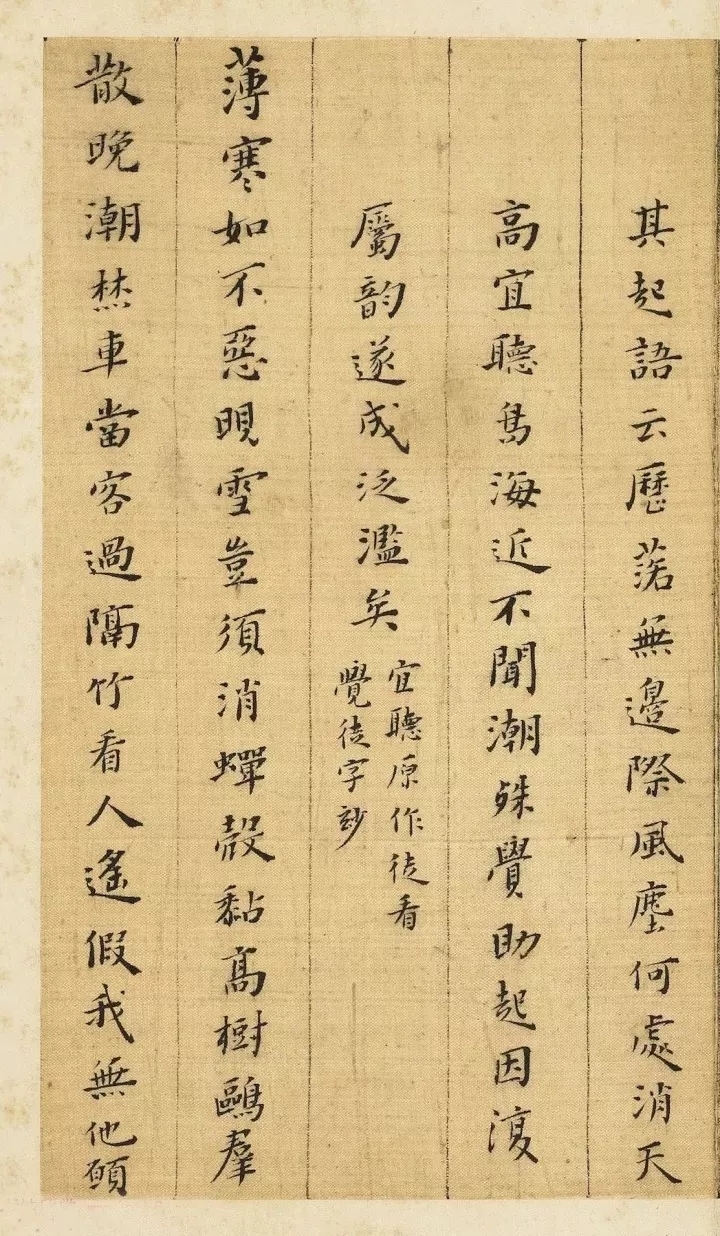 其起語云歷落無邊際風塵何處消天
高宜聽雋海近不聞潮殊覺助起因復
屬韵遂成泛濫矣
宜聽原作徒看
覺徒字玅
薄寒如不惡晛雪豈須消蟬殼黏高樹鷗羣
散晚潮焚車當客過隔竹看人遙假我無他願